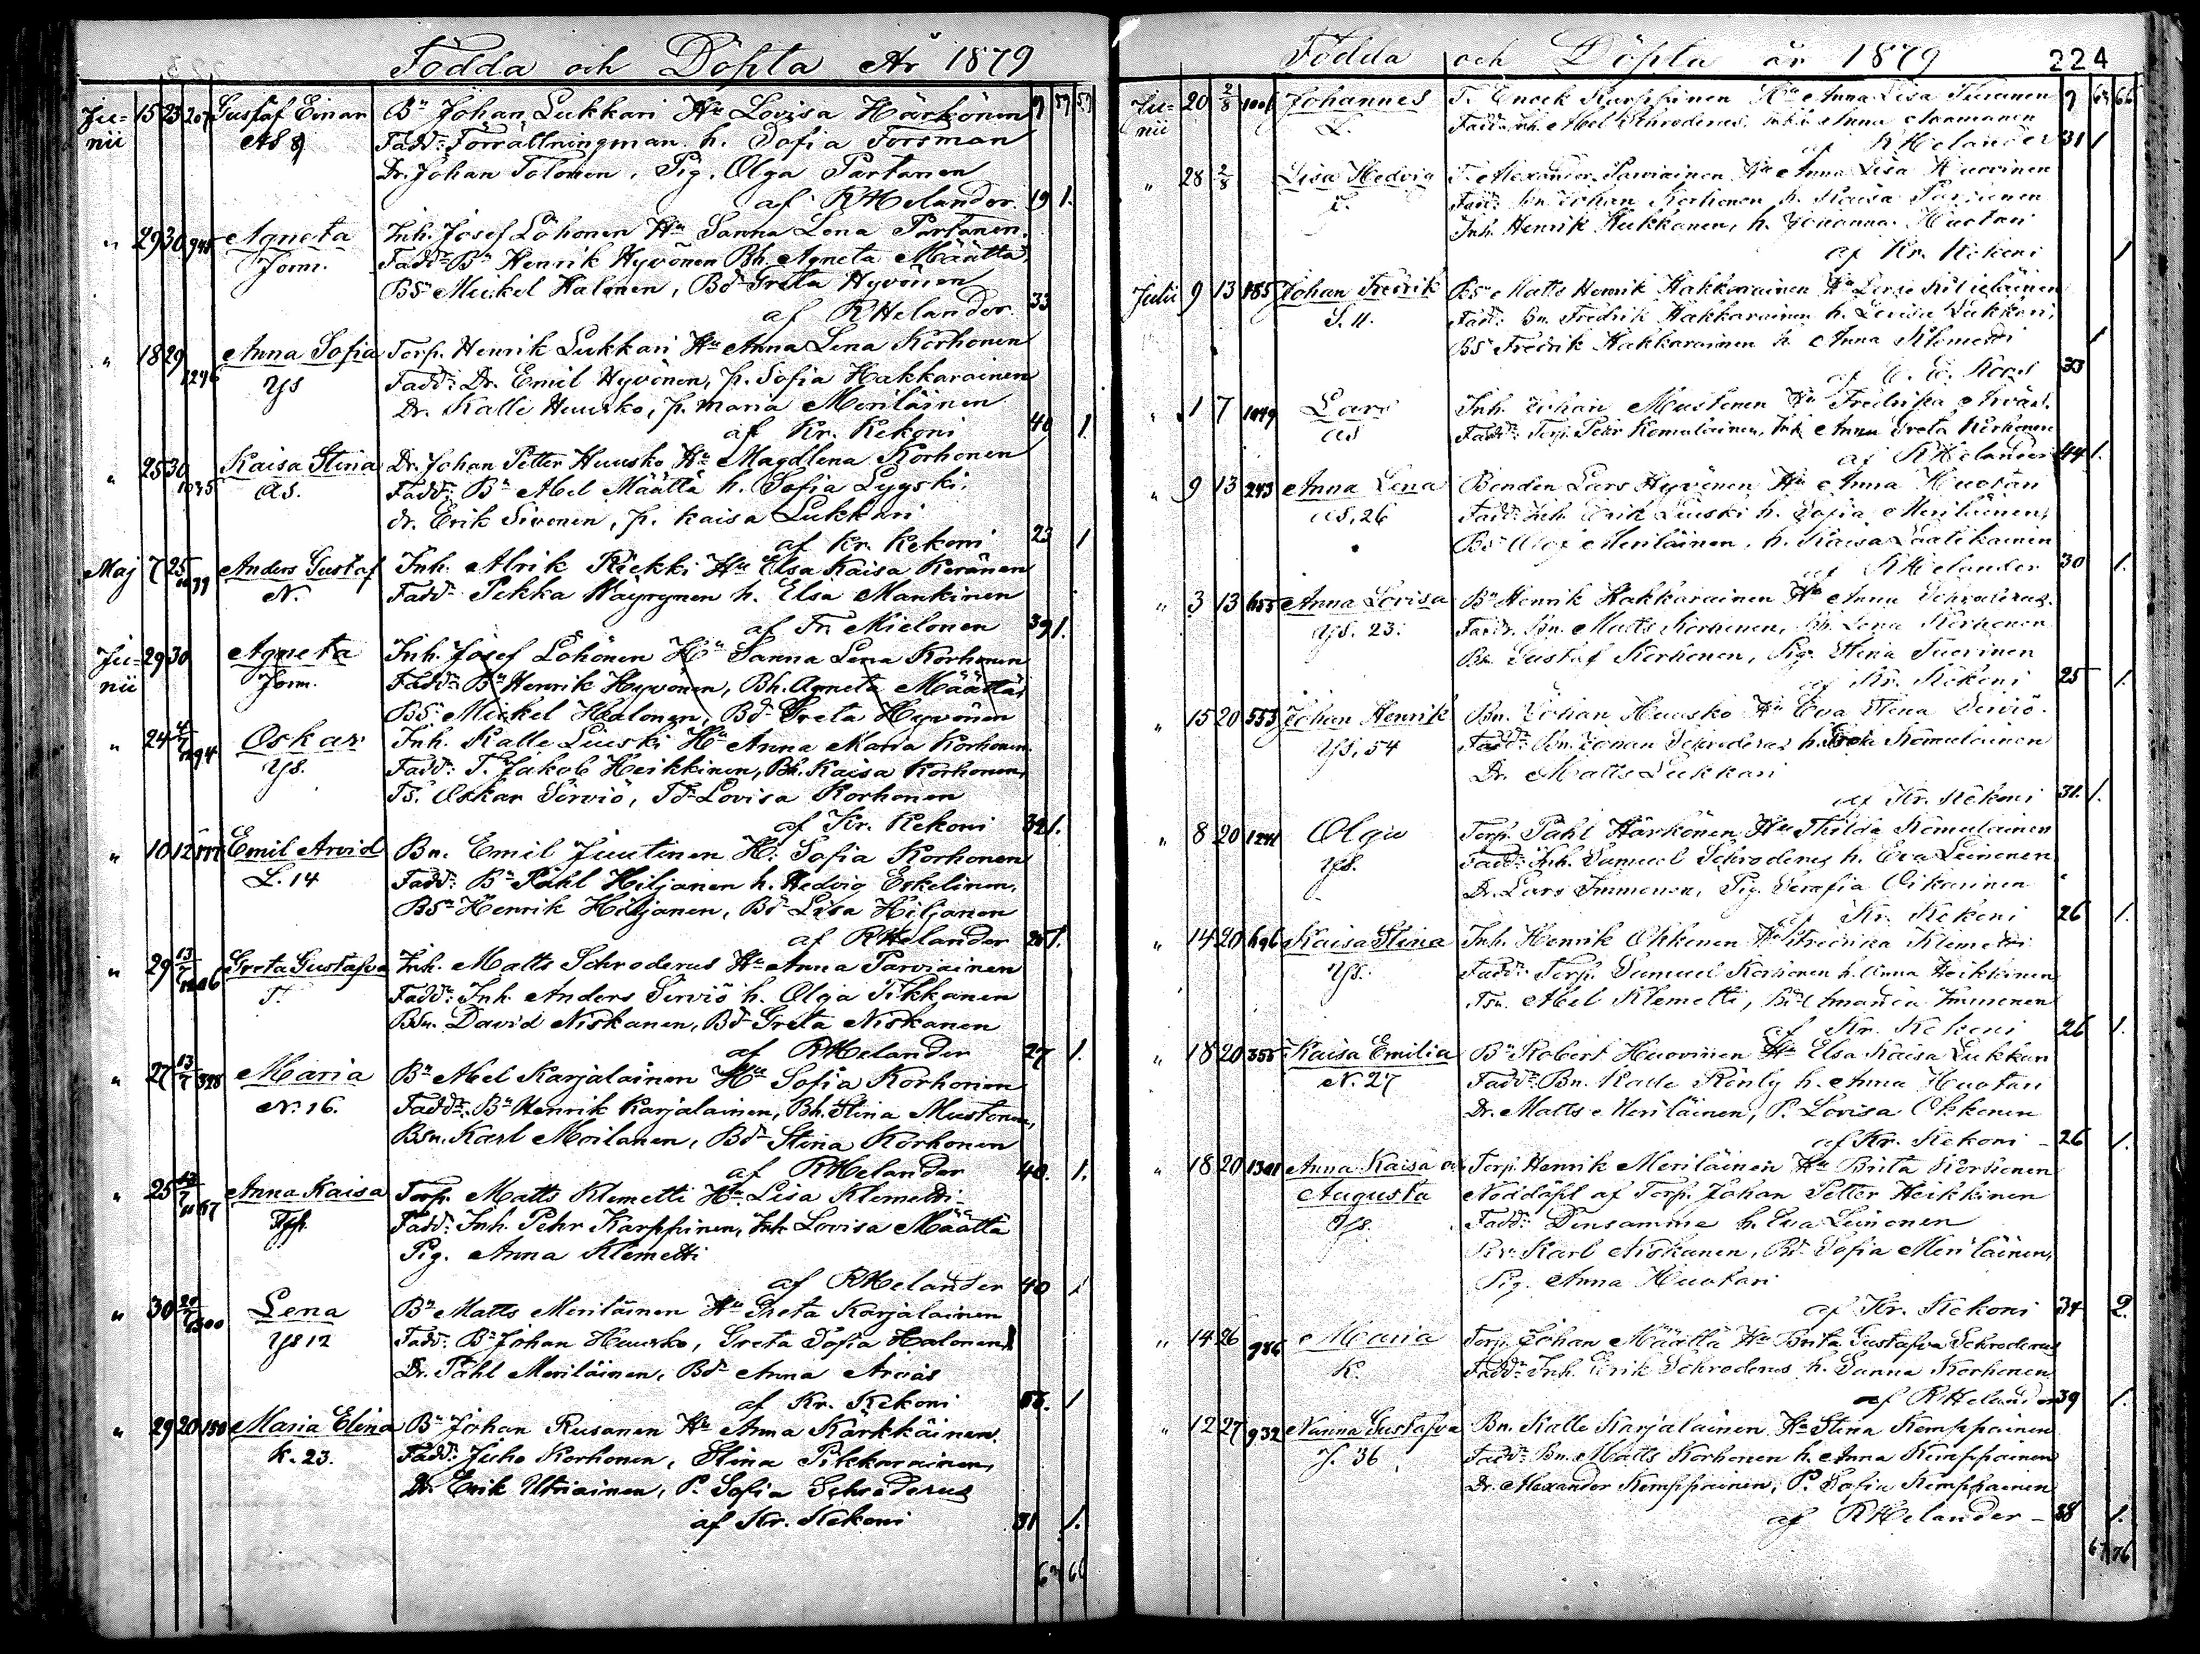 Födda och Döpta År 1879
Junii 15 23 207 Gustaf Einar Bn Johan Lukkari Hu Lovisa Härkönen 9 57 57
AS 8 Fadd: Förrättningman h. Sofia Forsman
Dr. Johan Tolonen, Pig. Olga Partanen
af RHelander 19 1.
" 29 30 948 Agneta Inh. Josef Löhönen Hu Sanna Lena Partanen.
Jorm. Fadd: Bn Henrik Hyvönen Bh. Agneta Määttä,
Bsn Mickel Halonen, Bd Greta Hyvönen
af RHelander 33
" 18 29 1296 Anna Sofia Torp. Henrik Lukkari Hu Anna Lena Korhonen
Ys Fadd: Dr. Emil Hyvönen, p. Sofia Hakkarainen
Dr. Kalle Huusko, p. Maria Meriläinen
af Kr. Kekoni 40 1
" 25 30 1035 Kaisa Stina Dr. Johan Petter Huusko Hu Magdlena Korhonen
As. Fadd: Bn Abel Määttä h. Sofia Lyyski.
dr. Erik Sivonen, p. Kaisa Lukkari
af Kr. Kekoni 23 1
Maj 7 25 Anders Gustaf Inh. Alrik Riekki Hu Elsa Kaisa Keränen
N. Fadd: Pekka Wäyrynen h. Elsa Mankinen
af Fr. Mielonen 39 1.
Junii 29 30 Agneta Inh. Josef Löhönen Hu Sanna Lena Korhonen
Jorm. Fadd: Bn Henrik Hyvönen, Bh. Agneta Määttä,
Bs. Mickel Halonen, Bd Greta Hyvönen
" 24 4/7 1294 Oskar Inh. Kalle Liuski Hu Anna Maria Korhonen
Ys. Fadd: T. Jakob Heikkinen, Bh. Kaisa Korhonen,
Ts. Oskar Serviö, Td Lovisa Korhonen
af Kr. Kekoni 32 1.
" 10 12 Emil Arvid Bn. Emil Juutinen H: Sofia Korhonen
L. 14 Fadd: Bn Påhl Hiljanen h. Hedvig Eskelinen,
Bsn Henrik Hiljanen, Bd Lisa Hiljanen
af RHelander 1.
" 29 13/7 Greta Gustafva Inh. Matts Schroderus Hu Anna Parviainen
T. Fadd: Inh. Anders Serviö h. Olga Pikkanen
Bsn. David Niskanen, Bd Greta Niskanen
af RHelander 27 1.
" 27 13/7 328 Maria Bn Abel Karjalainen Hu Sofia Korhonen
N. 16. Fadd: Bn Henrik Karjalainen, Bh. Stina Mustonen,
Bsn. Karl Moilanen, Bd Stina Korhonen
af RHelander 40. 1.
" 25 13/7 Anna Kaisa Torp. Matts Klemetti Hu Lisa Klemetti
Fadd: Inh. Pehr Karppinen, Inh Lovisa Määttä
Pig. Anna Klemetti
af RHelander 40 1
" 30 20/7 Lena Bn Matts Meriläinen Hu Greta Karjalainen
Ys 12 Fadd: Bn Johan Huusko, Greta Sofia Halonen
Dr. Påhl Meriläinen, Bd Anna
af Kr. Kekoni 1
" 29 20 150 Maria Elina Bn Johan Rusanen Hu Anna Kärkkäinen.
K. 23. Fadd: Juho Korhonen, Stina Pikkarainen,
Dr. Erik Utriainen, P. Sofia Schroderus
af Kr. Kekoni 31 1.
66
Födda och Döpta år 1879 224
Junii 20 2/8 Johannes T. Enock Karppinen Hu Anna Lisa Turunen 9 66
L. Fadd: Inh. Abel Schroderus, Anna
af RHelander 31 1
" 28 2/8 Lisa Hedvig T. Alexander Parviainen Hu Anna Lisa Huovinen
Fadd: Bn. Johan Korhonen h. Kaisa
Inh. Henrik Kukkonen, h. Johanna Huotari
af Kr. Kekoni 1
Julii 9 13 185 Johan Fredrik Bsn Matts Henrik Hakkarainen Hu
S. 11. Fadd: Bn. Fredrik Hakkarainen h. Lovisa Lukkari,
Bs Fredrik Hakkarainen h Anna Klemetti 1
af 33
" 1 7 1049 Lars Inh. Johan Mustonen Hu Fredrika
As Fadd: Torp. Pehr Komulainen, Inh. Anna Greta Korhonen
af RHelander 44 1.
" 9 13 243 Anna Lena Bonden Lars Hyvönen Hu Anna Huotari
As, 26 Fadd: Inh. Erik Liuski h. Sofia Meriläinen,
Bs Olof Meriläinen, h. Kaisa Laatikainen
af RHelander 30 1.
" 3 13 655 Anna Lovisa Bn Henrik Hakkarainen Hu Anna Schroderus.
Ys. 23. Fadd: Bn. Matts Korhonen, Bh. Lena Korhonen
Bs. Gustaf Korhonen, Pig. Stina Tuorinen
af Kr. Kekoni 25 1.
" 15 20 553 Johan Henrik Bn. Johan Huusko Hu Eva Stina Serviö.
Ys, 54 Fadd: Bn. Johan Schroderus h. Komulainen
Dr. Matts Lukkari
af Kr. Kekoni 31. 1.
" 8 20 Olga Torp. Påhl Härkönen Hu Hilda Komulainen
Ys. Fadd: Inh. Samuel Schroderus h. Eva Leinonen
Dr. Lars Immonen, Pig. Serafia Oikarinen
af Kr. Kekoni 26 1.
" 14 20 696 Kaisa Stina Inh. Henrik Okkonen Hu Fredrika Klemetti
Ys. Fadd: Torp. Samuel Korhonen h. Anna Heikkinen
Tsn. Abel Klemetti, Bd Amanda Immonen
af Kr. Kekoni 26 1.
" 18 20 355 Kaisa Emilia Bn Robert Huovinen Hu Elsa Kaisa Lukkari
N. 27 Fadd: Bn. Kalle h. Anna Huotari
Dr. Matts Meriläinen, P. Lovisa Okkonen
af Kr. Kekoni - 26 1.
" 18 20 1301 Anna Kaisa o. Torp. Henrik Meriläinen Hu Brita Korhonen
Augusta Nöddöpt af Torp. Johan Petter Heikkinen
Ys. Fadd: Densamme h. Eva Leinonen
Karl Niskanen, Bd. Sofia Meriläinen,
Pig. Anna Huotari
af Kr. Kekoni 34 2.
" 14 26 986 Maria Torp. Johan Määttä Hu Brita Gustafva Schroderus
K. Fadd: Inh. Erik Schroderus h. Sanna Korhonen
af RHelander 39 1.
" 12 27 932 Nanna Gustafva Bn. Kalle Karjalainen Hu Stina Kemppainen
J. 36 Fadd: Bn. Matts Korhonen h. Anna Kemppainen
Dr. Alexander Kemppainen, P. Sofia Kemppainen
af RHelander - 38 1.
67 76